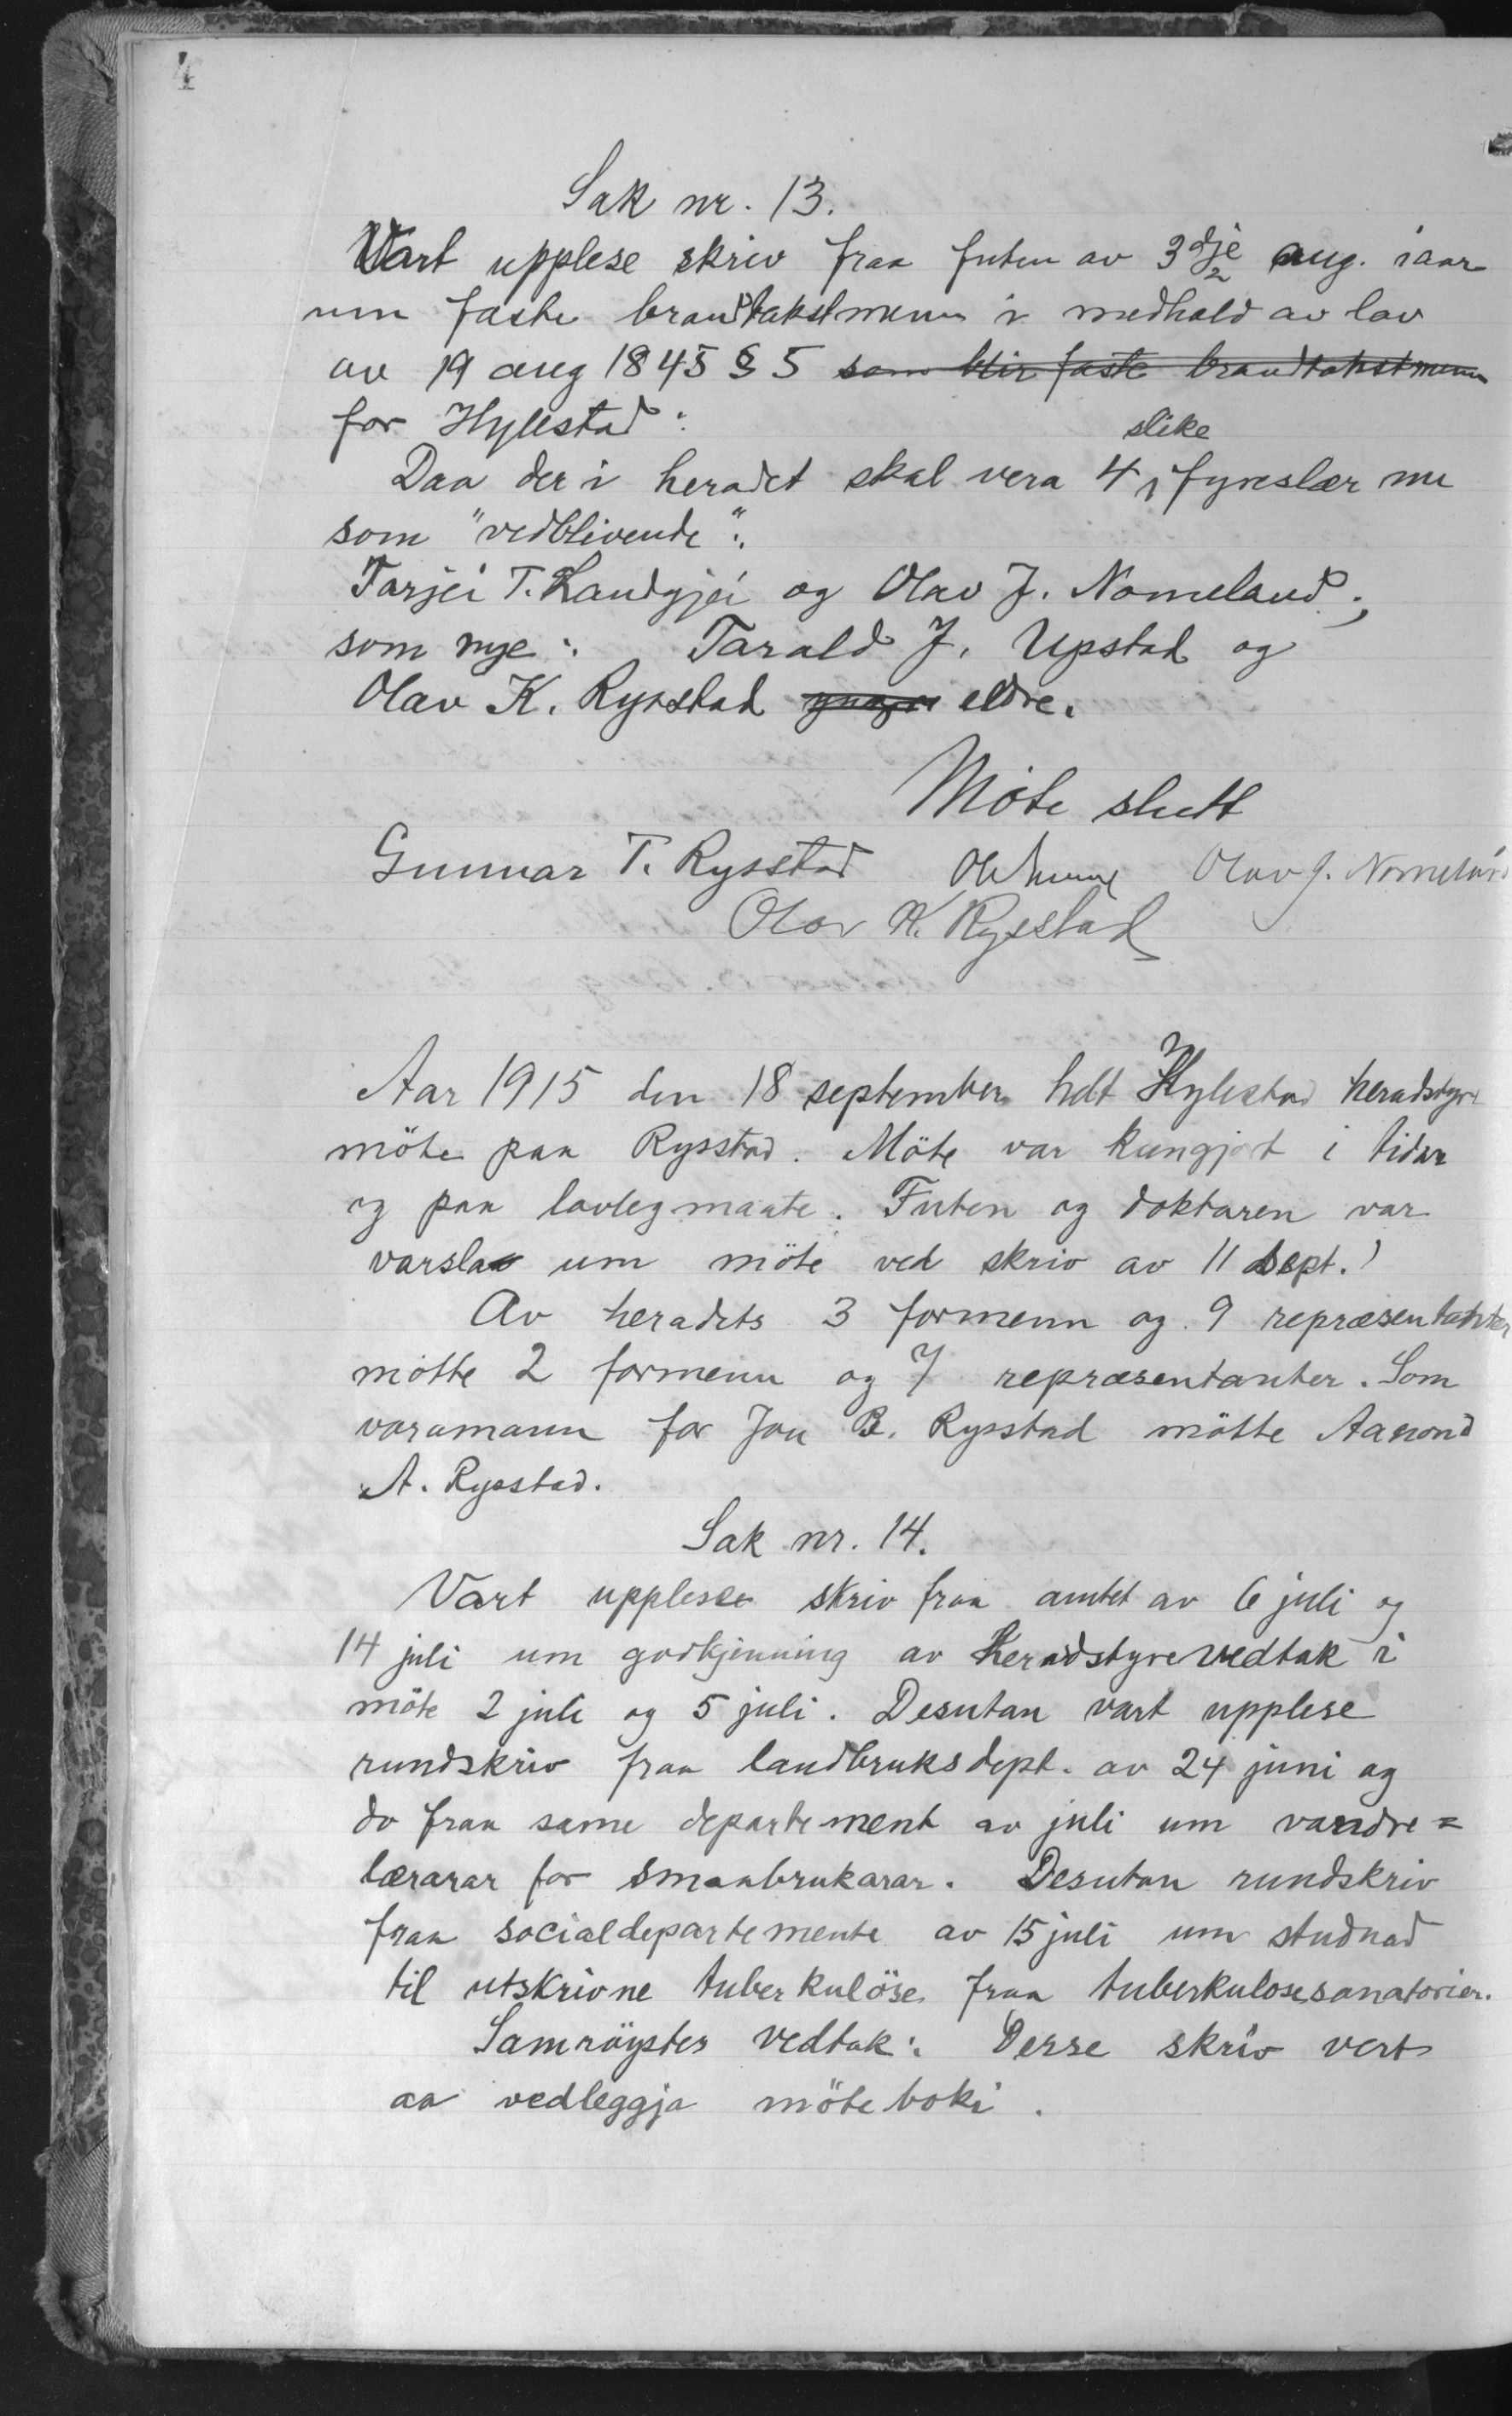 4
Sak nr. 13.
Vart upplese skriv fraa futen av 3dje aug. iaar
um faste brandtakstmenn i medhald av lov
av 19 aug 1845 § 5 som blir faste brandtakstmenn
for Hylestad:
slike
Daa der i heradet skal vera 4 fyreslær me
som "vedblivende":
Tarjei T. Landgjei og Olav J. Nomeland;
som nye: Tarald J. Upstad og
Olav K. Rysstad yngre eldre.
Möte slutt
Gunnar T. Rysstad Olav J. Nomeland
Olav K. Rysstad
Aar 1915 den 18 september helt Hylestad heradstyre
möte paa Rysstad. Möte var kungjort i tide
og paa lovleg maate. Futen og doktaren var
varsla um möte ved skriv av 11 sept.
Av heradets 3 formenn og 9 repræsentanter
mötte 2 formenn og 7 repræsentanter. Som
varamann for Jon B. Rysstad mötte Aanond
A. Rysstad.
Sak nr. 14.
Vart upplese skriv fraa amtet av 6 juli og
14 juli um godkjenning av heradstyrevedtak i
möte 2 juli og 5 juli. Desutan vart upplese
rundskriv fraa landbruksdept. av 24 juni og
do fraa same departement av juli um vandre=
lærarar for smaabrukarar. Desutan rundskriv
fraa socialdepartemente av 15 juli um studnad
til utskrivne tuberkulöse fraa tuberkulosesanatorier.
Samröystes vedtak: Desse skriv vert
aa vedleggja möteboki.